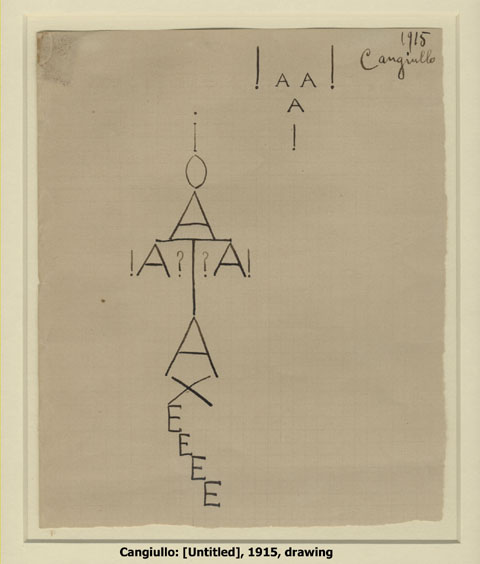 1915
Cangiullo
! A A !
A
!
i
O
A
T
! A ? ? A !
A
X
E
E
E
E
Cangiullo: [Untitled], 1915, drawing